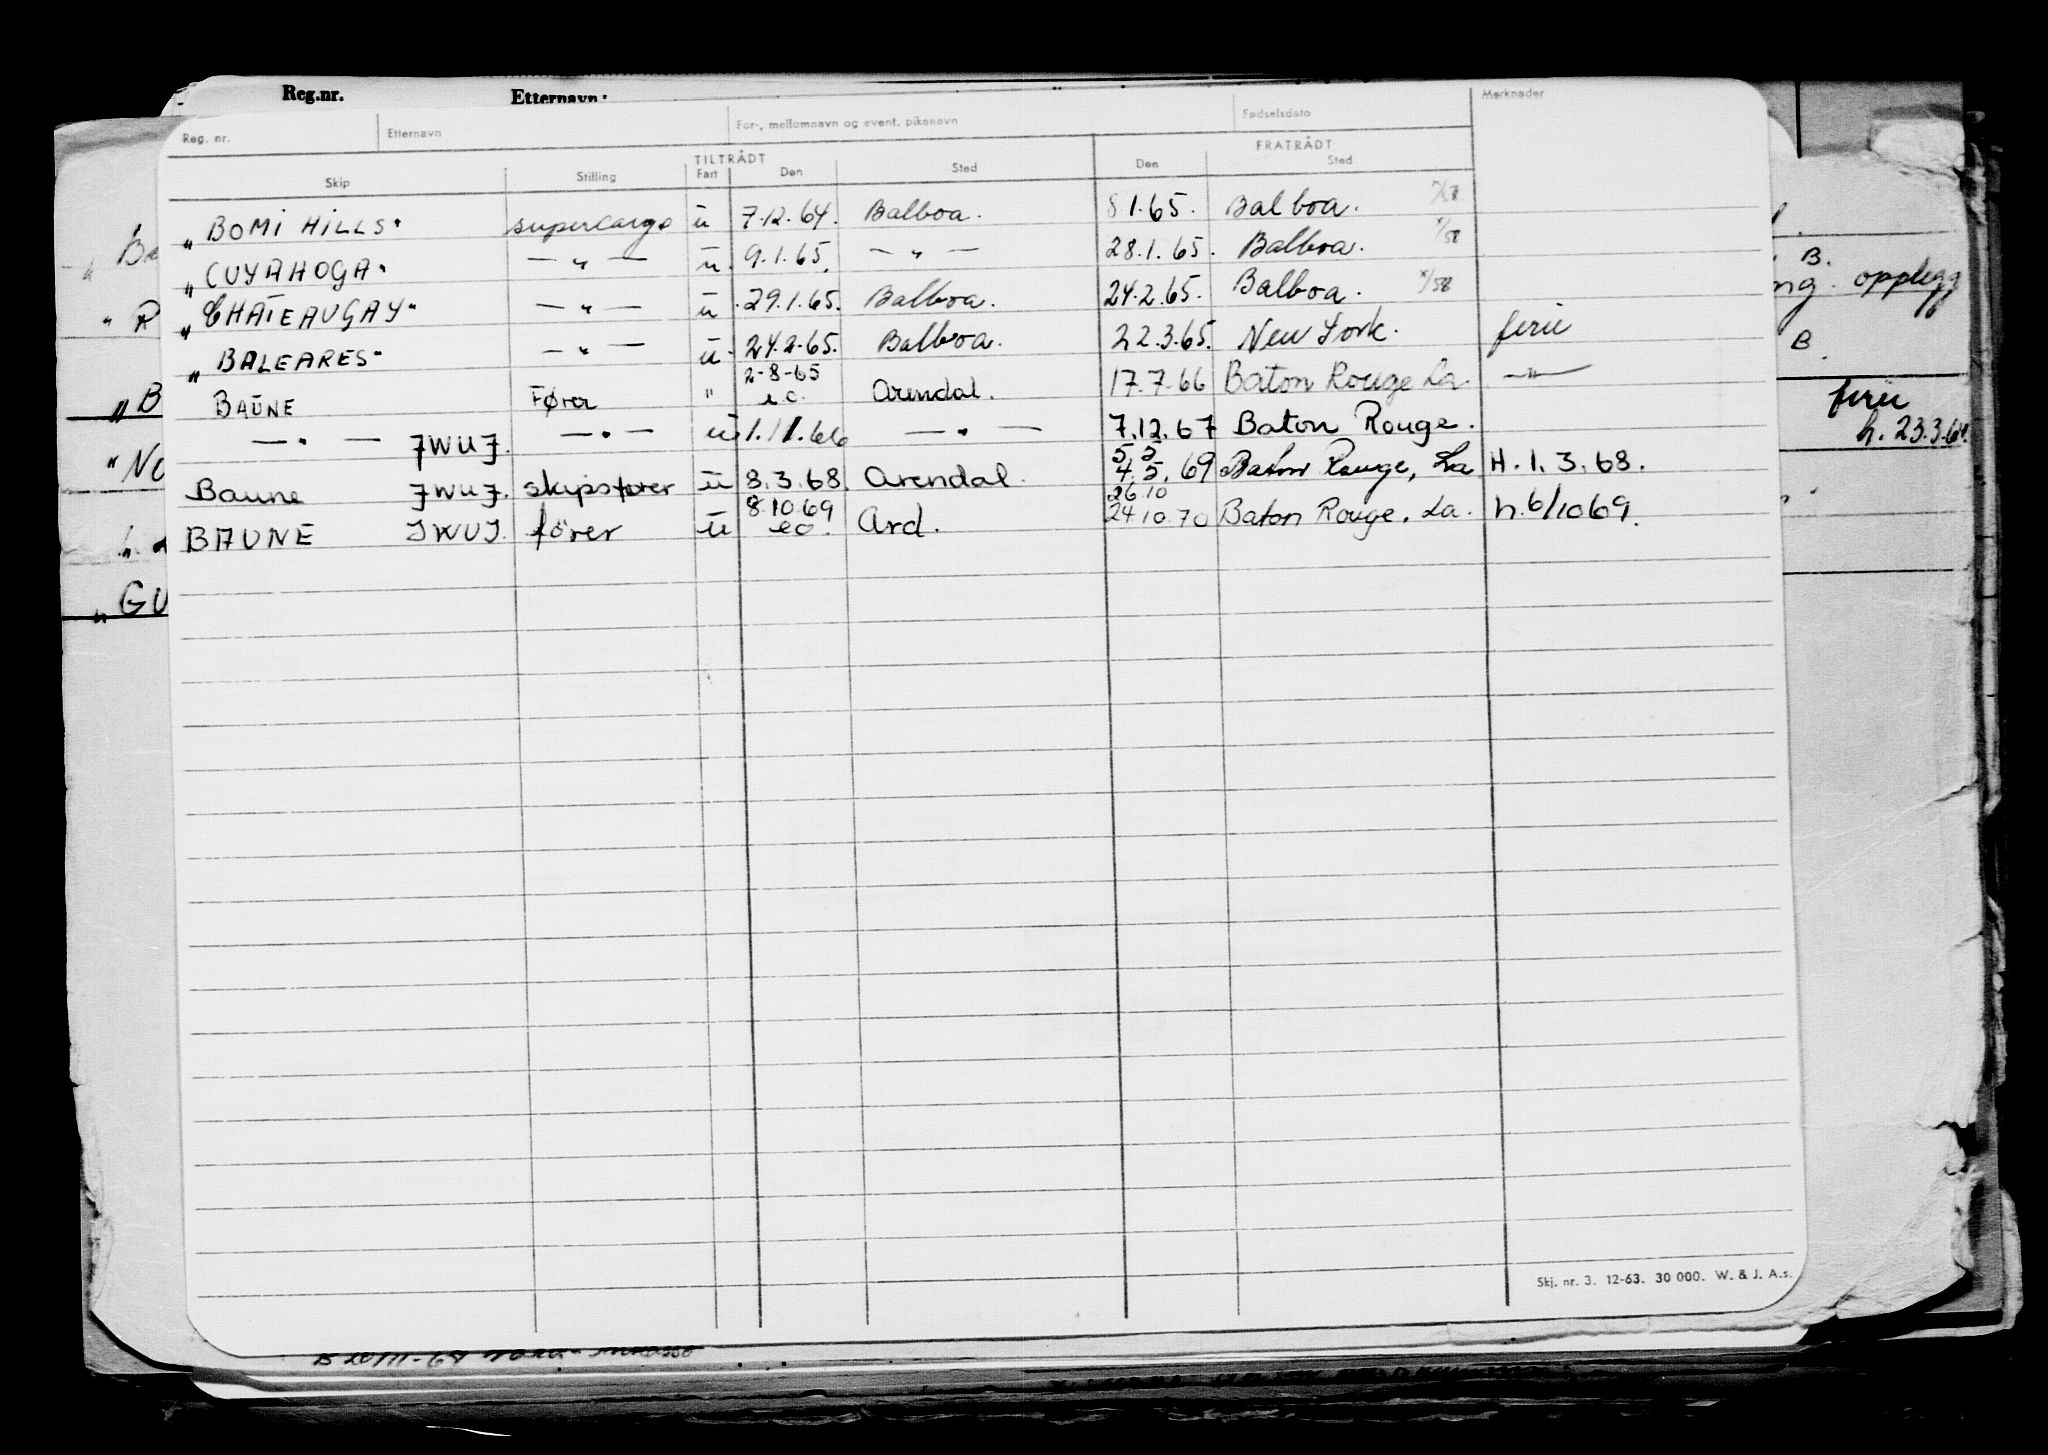 Reg.nr. Etternavn:
Reg. nr. Etternavn For-, mellomnavn og event. pikenavn Fødselsdato Merknader
TILTRÅDT FRATRÅDT
Skip Stilling Fart Den Sted Den Sted
„ BOMI HILLS" supercargo ū 7.12.64. Balboa. 8 1.65. Balboa.
„ CUYAHOGA" — „ — ū. 9.1.65. — „ — 28.1.65. Balboa. /58
„ CHATEAUGAY" — „ — ū 29.1.65. Balboa. 24.2.65. Balboa. /58
„ BALEARES" — „ — ū. 24.2.65. Balboa. 22.3.65. New York. ferie
BAUNE Fører " 2-8-65 e.o. Arendal. 17.7.66 Baton Rouge La. — „ —
— „ — JWUJ. — „ — ū 1.11.66 — „ — 7.12.67 Baton Rouge.
Baune JWUJ. skipsfører ū 8.3.68. Arendal. 5.5 4.5.69 Baton Rouge, La H. 1.3.68.
BAUNE JWUJ. förer ū 8.10.69 eo. Ard. 26.10 24.10.70 Baton Rouge. La. h. 6/1069.
B.
ng. opplegg
„ R
B.
„ B ferie
h. 23.3.64.
" NO
„ GU
Skj. nr. 3. 12-63. 30 000. W. & J. A.s.